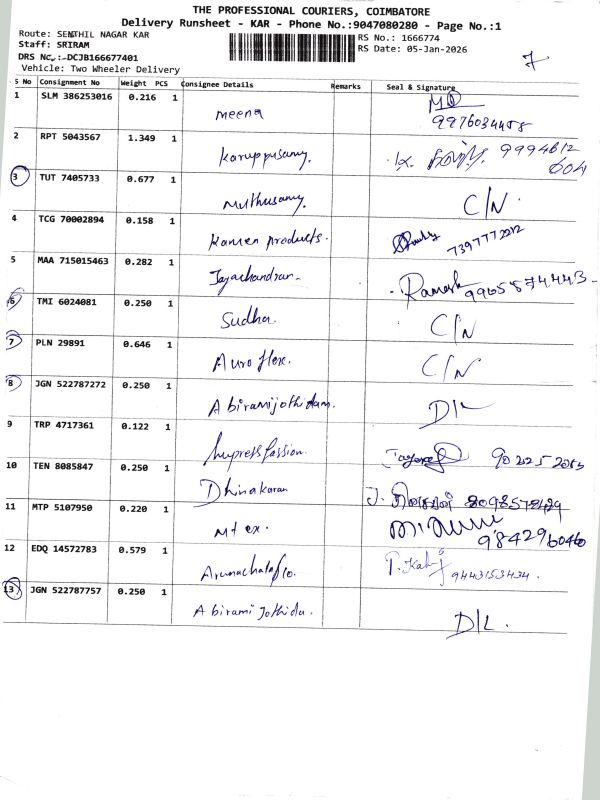 THE PROFESSIONAL COURIERS, COIMBATORE
Delivery Runsheet - KAR - Phone No.:9047080280 - Page No.:1
Route: SENTHIL NAGAR KAR
Staff: SRIRAM
DRS No.:-DCJB166677401
Vehicle: Two Wheeler Delivery
RS No.: 1666774
RS Date: 05-Jan-2026
7
S No Consignment No Weight PCS Consignee Details Remarks Seal & Signature
1 SLM 386253016 0.216 1 meena
2 RPT 5043567 1.349 1 Karuppusamy. 9994612 604
3 TUT 7405733 0.677 1 Muthusamy. C/N
4 TCG 70002894 0.158 1 Kamen products.
5 MAA 715015463 0.282 1 Jayachandran. Ramesh 9965574443
6 TMI 6024081 0.250 1 Sudha. C/N
7 PLN 29891 0.646 1 Auro flex. C/N
8 JGN 522787272 0.250 1 Abiramijothidam. D/L
9 TRP 4717361 0.122 1
10 TEN 8085847 0.250 1 Dhinakaran
11 MTP 5107950 0.220 1 Mt ex. 9842960460
12 EDQ 14572783 0.579 1 9443153434.
13 JGN 522787757 0.250 1 Abirami Jothida. D/L.